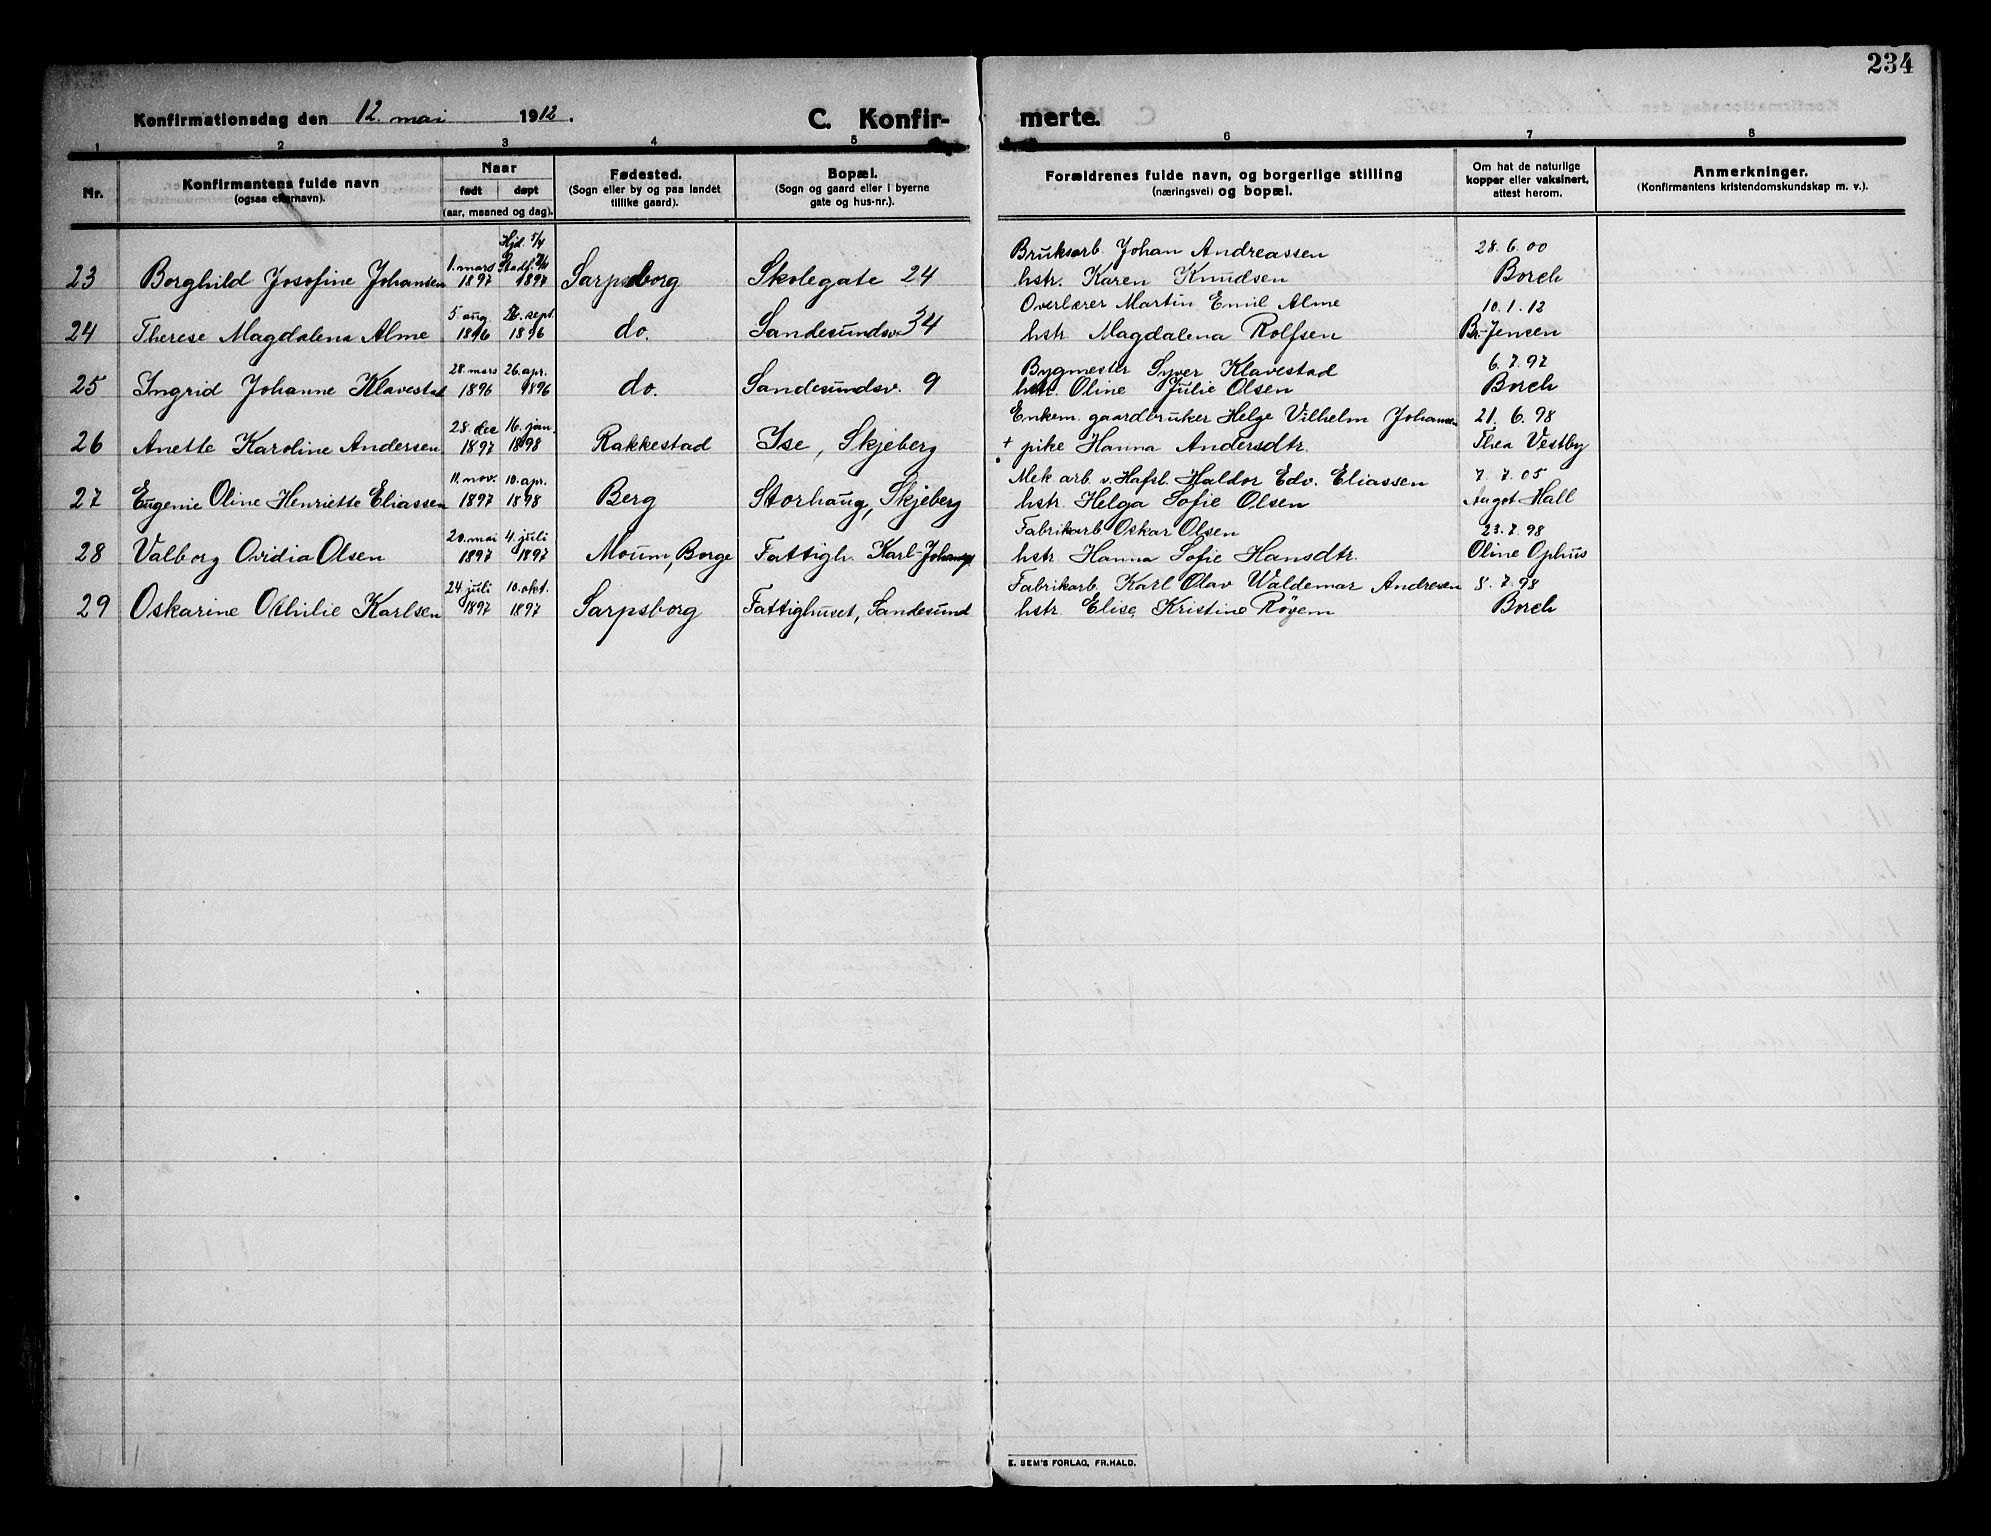 234
Konfirmationsdag den 12. mai 1912.
C. Konfir-
merte.
1 2 3 4 5 6 7 8
Nr.
Konfirmantens fulde navn
(ogsaa efternavn).
Naar
født døpt
(aar, maaned og dag).
Fødested.
(Sogn eller by og paa landet
tillike gaard).
Bopæl.
(Sogn og gaard eller i byerne
gate og hus-nr.).
Forældrenes fulde navn, og borgerlige stilling
(næringsvei) og bopæl.
Om hat de naturlige
kopper eller vaksinert,
attest herom.
Anmerkninger.
(Konfirmantens kristendomskundskap m. v.).
Hjd. 5/4
1. mars Stadf.
Bruksarb. Johan Andreassen 28. 6. 00
23 Borghild Josofine Johansen 1897 1897 Sarpsborg Skolegate 24 hstr. Karen Knudsen Borch
5. aug. sept. Overlærer Martin Emil Alme 10. 1. 12
24 Therese Magdalena Alme 1896 1896 do. Sandesundsv. 34 hstr. Magdalena Rolfsen Br. Jensen
28. mars 26. apr. Bygmester Syver Klavestad 6. 7. 97
25 Ingrid Johanne Klavestad 1896 1896 do. Sandesundsv. 9 hstr. Oline Julie Olsen Borch
28. dec 16. jan. Enkem. gaardbruker Helge Vilhelm Johansen 21. 6. 98
26 Anette Karoline Andersen 1897 1898 Rakkestad Ise, Skjeberg + pike Hanna Andersdtr. Thea Vestby
11. nov. 10. apr. Mek. arb. v. Hafsl. Haldor Edv. Eliassen 7. 7. 05
27 Eugenie Oline Henriette Eliassen 1897 1898 Berg Storhaug, Skjeberg hstr. Helga Sofie Olsen Aagot Hall
20. mai 4. juli Fabrikarb. Oskar Olsen 23. 7. 98
28 Valborg Ovidia Olsen 1897 1897 Moum, Borge Fattigh. Karl-Johansg. hstr. Hanna Sofie Hansdtr. Oline Ophus
24. juli 10. okt. Fabrikarb. Karl Olav Waldemar Andresen 8. 7. 98
29 Oskarine Othilie Karlsen 1897 1897 Sarpsborg Fattighuset, Sandesund hstr. Elise Kristine Røyem Borch
E. SEM'S FORLAG, FR.HALD.